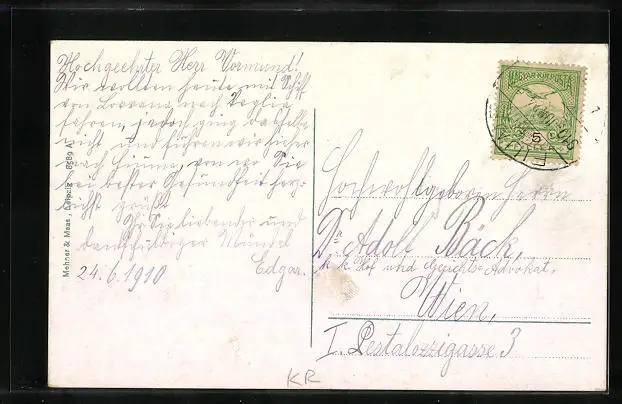 Hochgeehrter Herr Vormund!
Wir wollten heute mit Schiff
von Lovrana nach Veglia
fahren, jedoch ging dasselbe
nicht und fuhren wir sicher
nach Fiume, von wo Sie
bei bester Gesundheit herz-
lichst grüßt
Ihr Sie liebender und
dankschuldiger Mündel
Edgar.
24.6.1910
Mehner & Maas, Leipzig
MAGYAR KIR. POSTA
5
FIUME
Hochwohlgeboren Herrn
Dr Adolf Bäck,
k. k. Hof und Gerichts-Advokat,
Wien,
I. Pestalozzigasse 3
KR